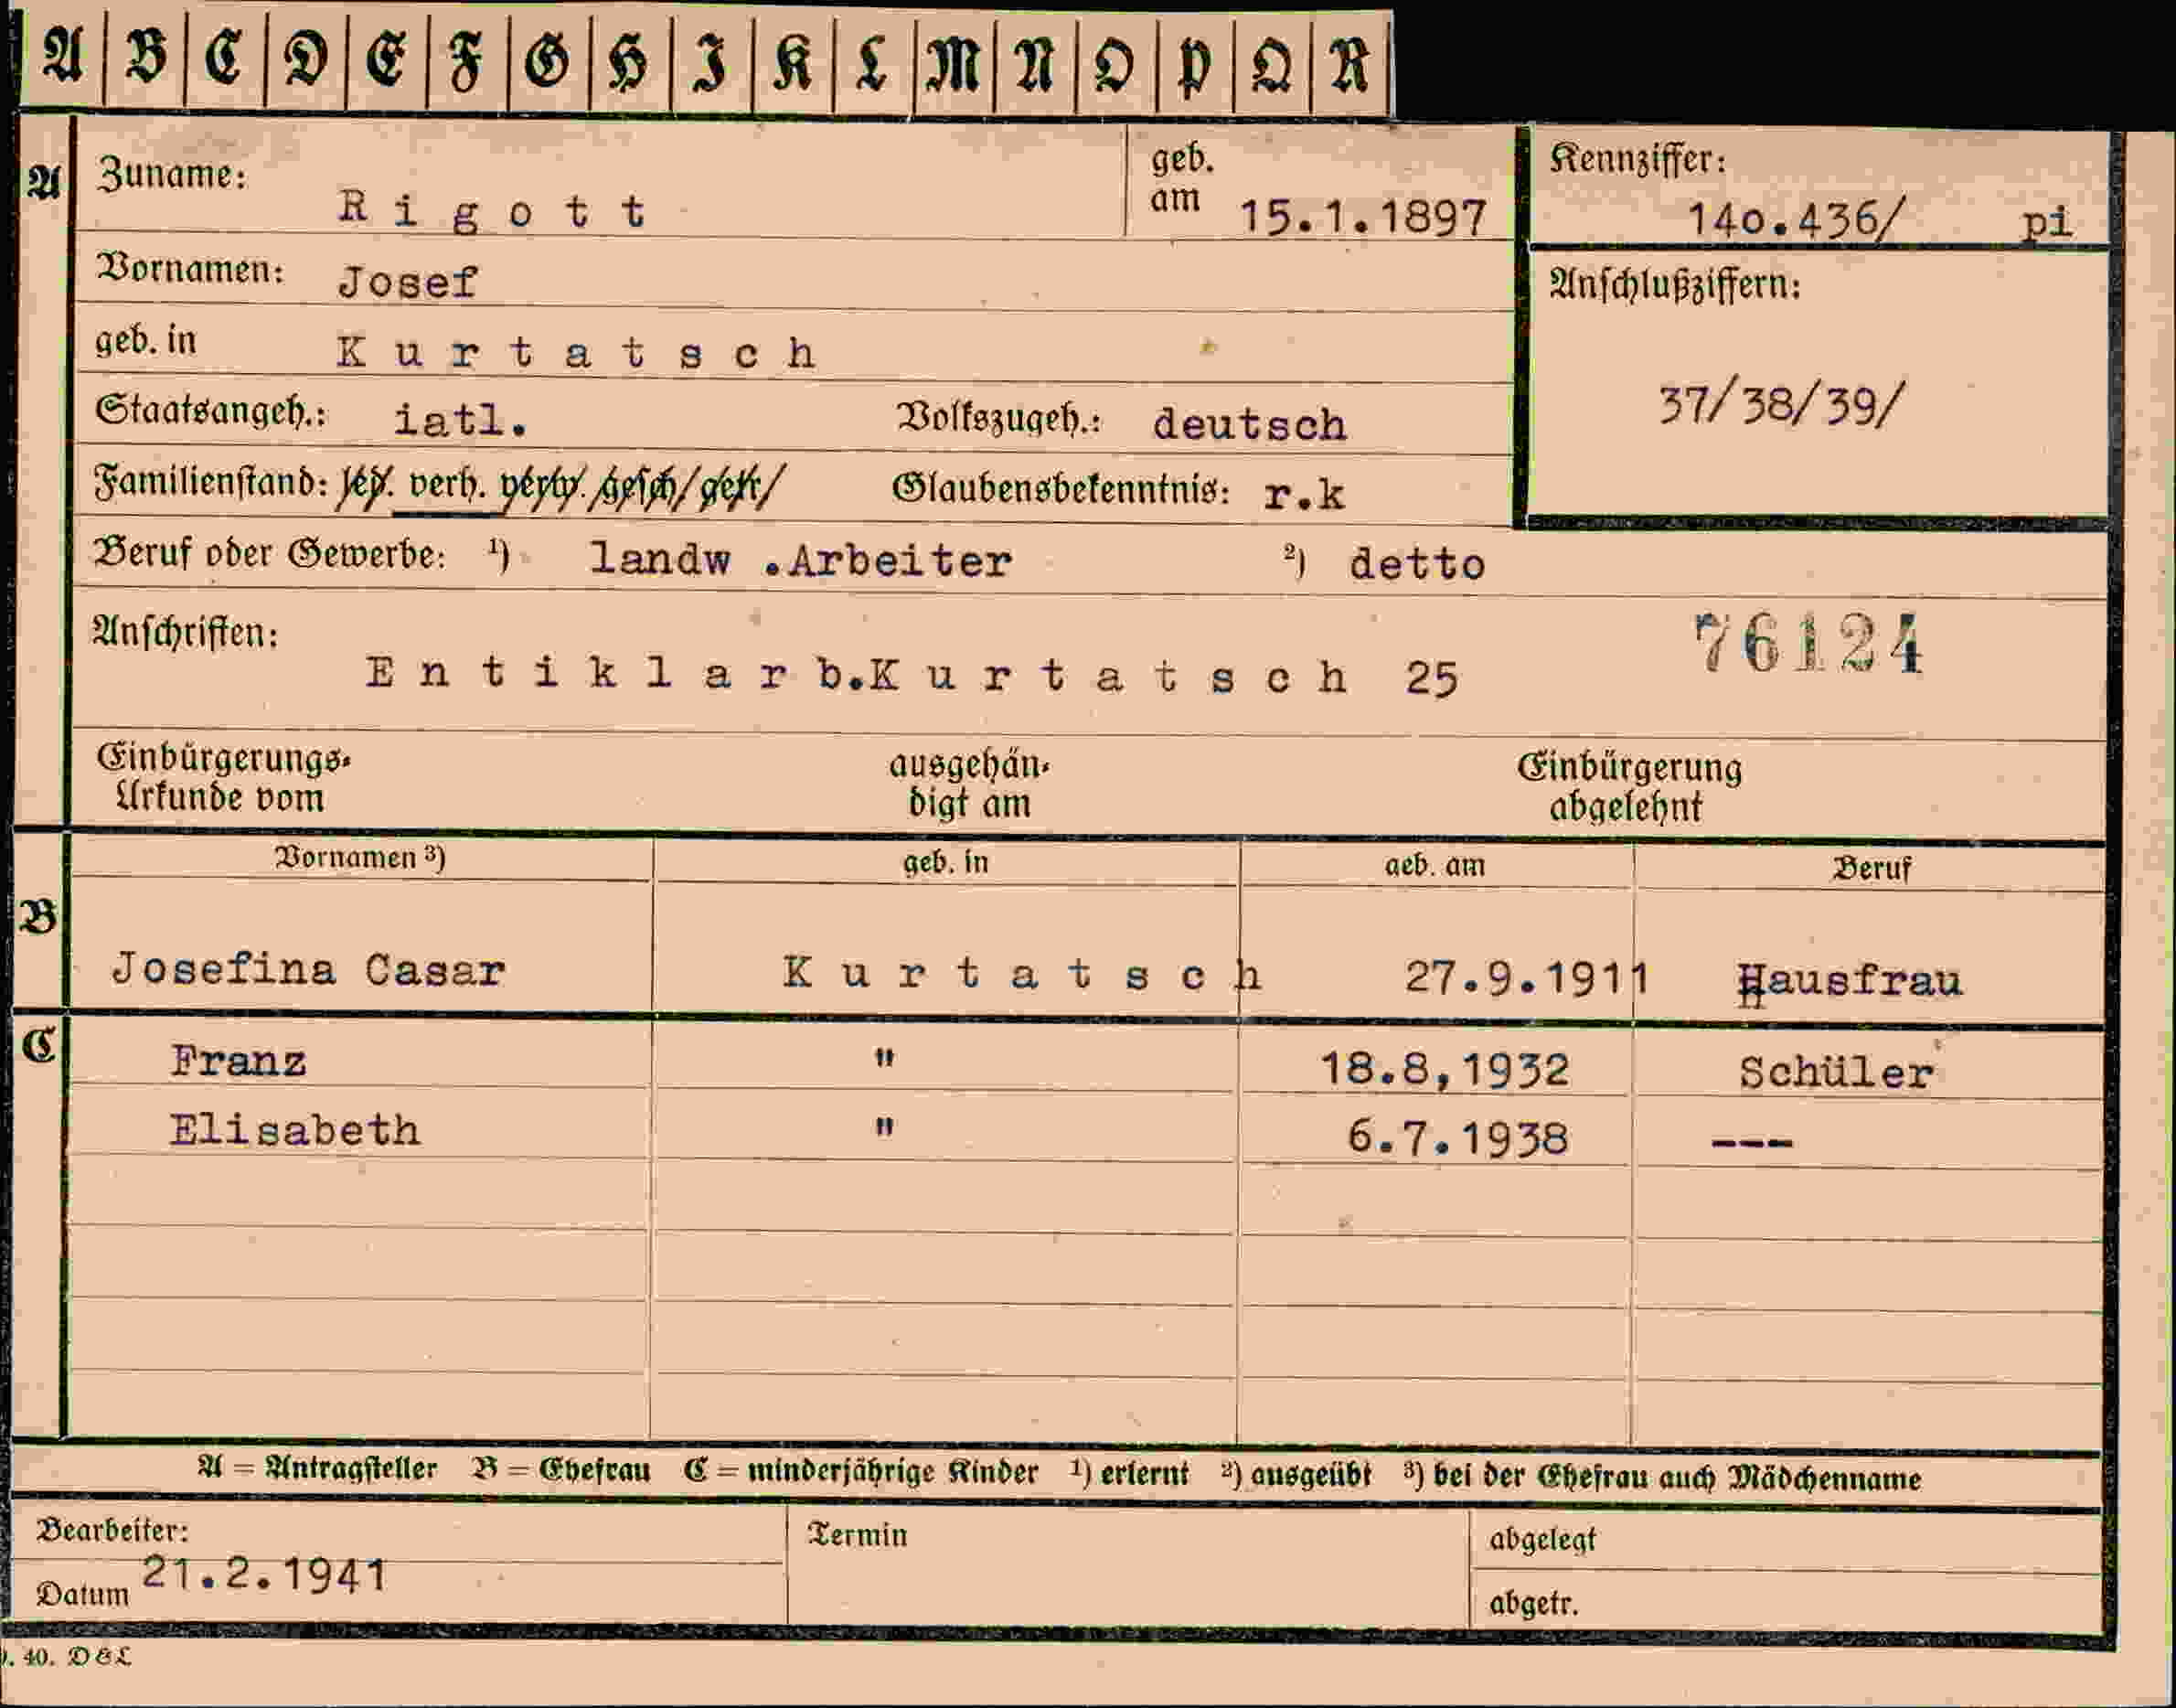 A B C D E F G H I K L M N O P Q R
A Zuname: Rigott geb. am 15.1.1897 Kennziffer: 140.436/ pi
Vornamen: Josef Anschlußziffern:
geb. in Kurtatsch
37/38/39/
Staatsangeh.: iatl. Volkszugeh.: deutsch
Familienstand: led. verh. verw. gesch. getr. Glaubensbekenntnis: r.k
Beruf oder Gewerbe: ¹) landw .Arbeiter ²) detto
Anschriften: 76124
Entiklarb.Kurtatsch 25
Einbürgerungs- ausgehän- Einbürgerung
Urkunde vom digt am abgelehnt
Vornamen ³) geb. in geb. am Beruf
B
Josefina Casar Kurtatsch 27.9.1911 Hausfrau
C Franz " 18.8,1932 Schüler
Elisabeth " 6.7.1938 ---
A = Antragsteller B = Ehefrau C = minderjährige Kinder ¹) erlernt ²) ausgeübt ³) bei der Ehefrau auch Mädchenname
Bearbeiter: Termin abgelegt
Datum 21.2.1941 abgetr.
. 40. D&L